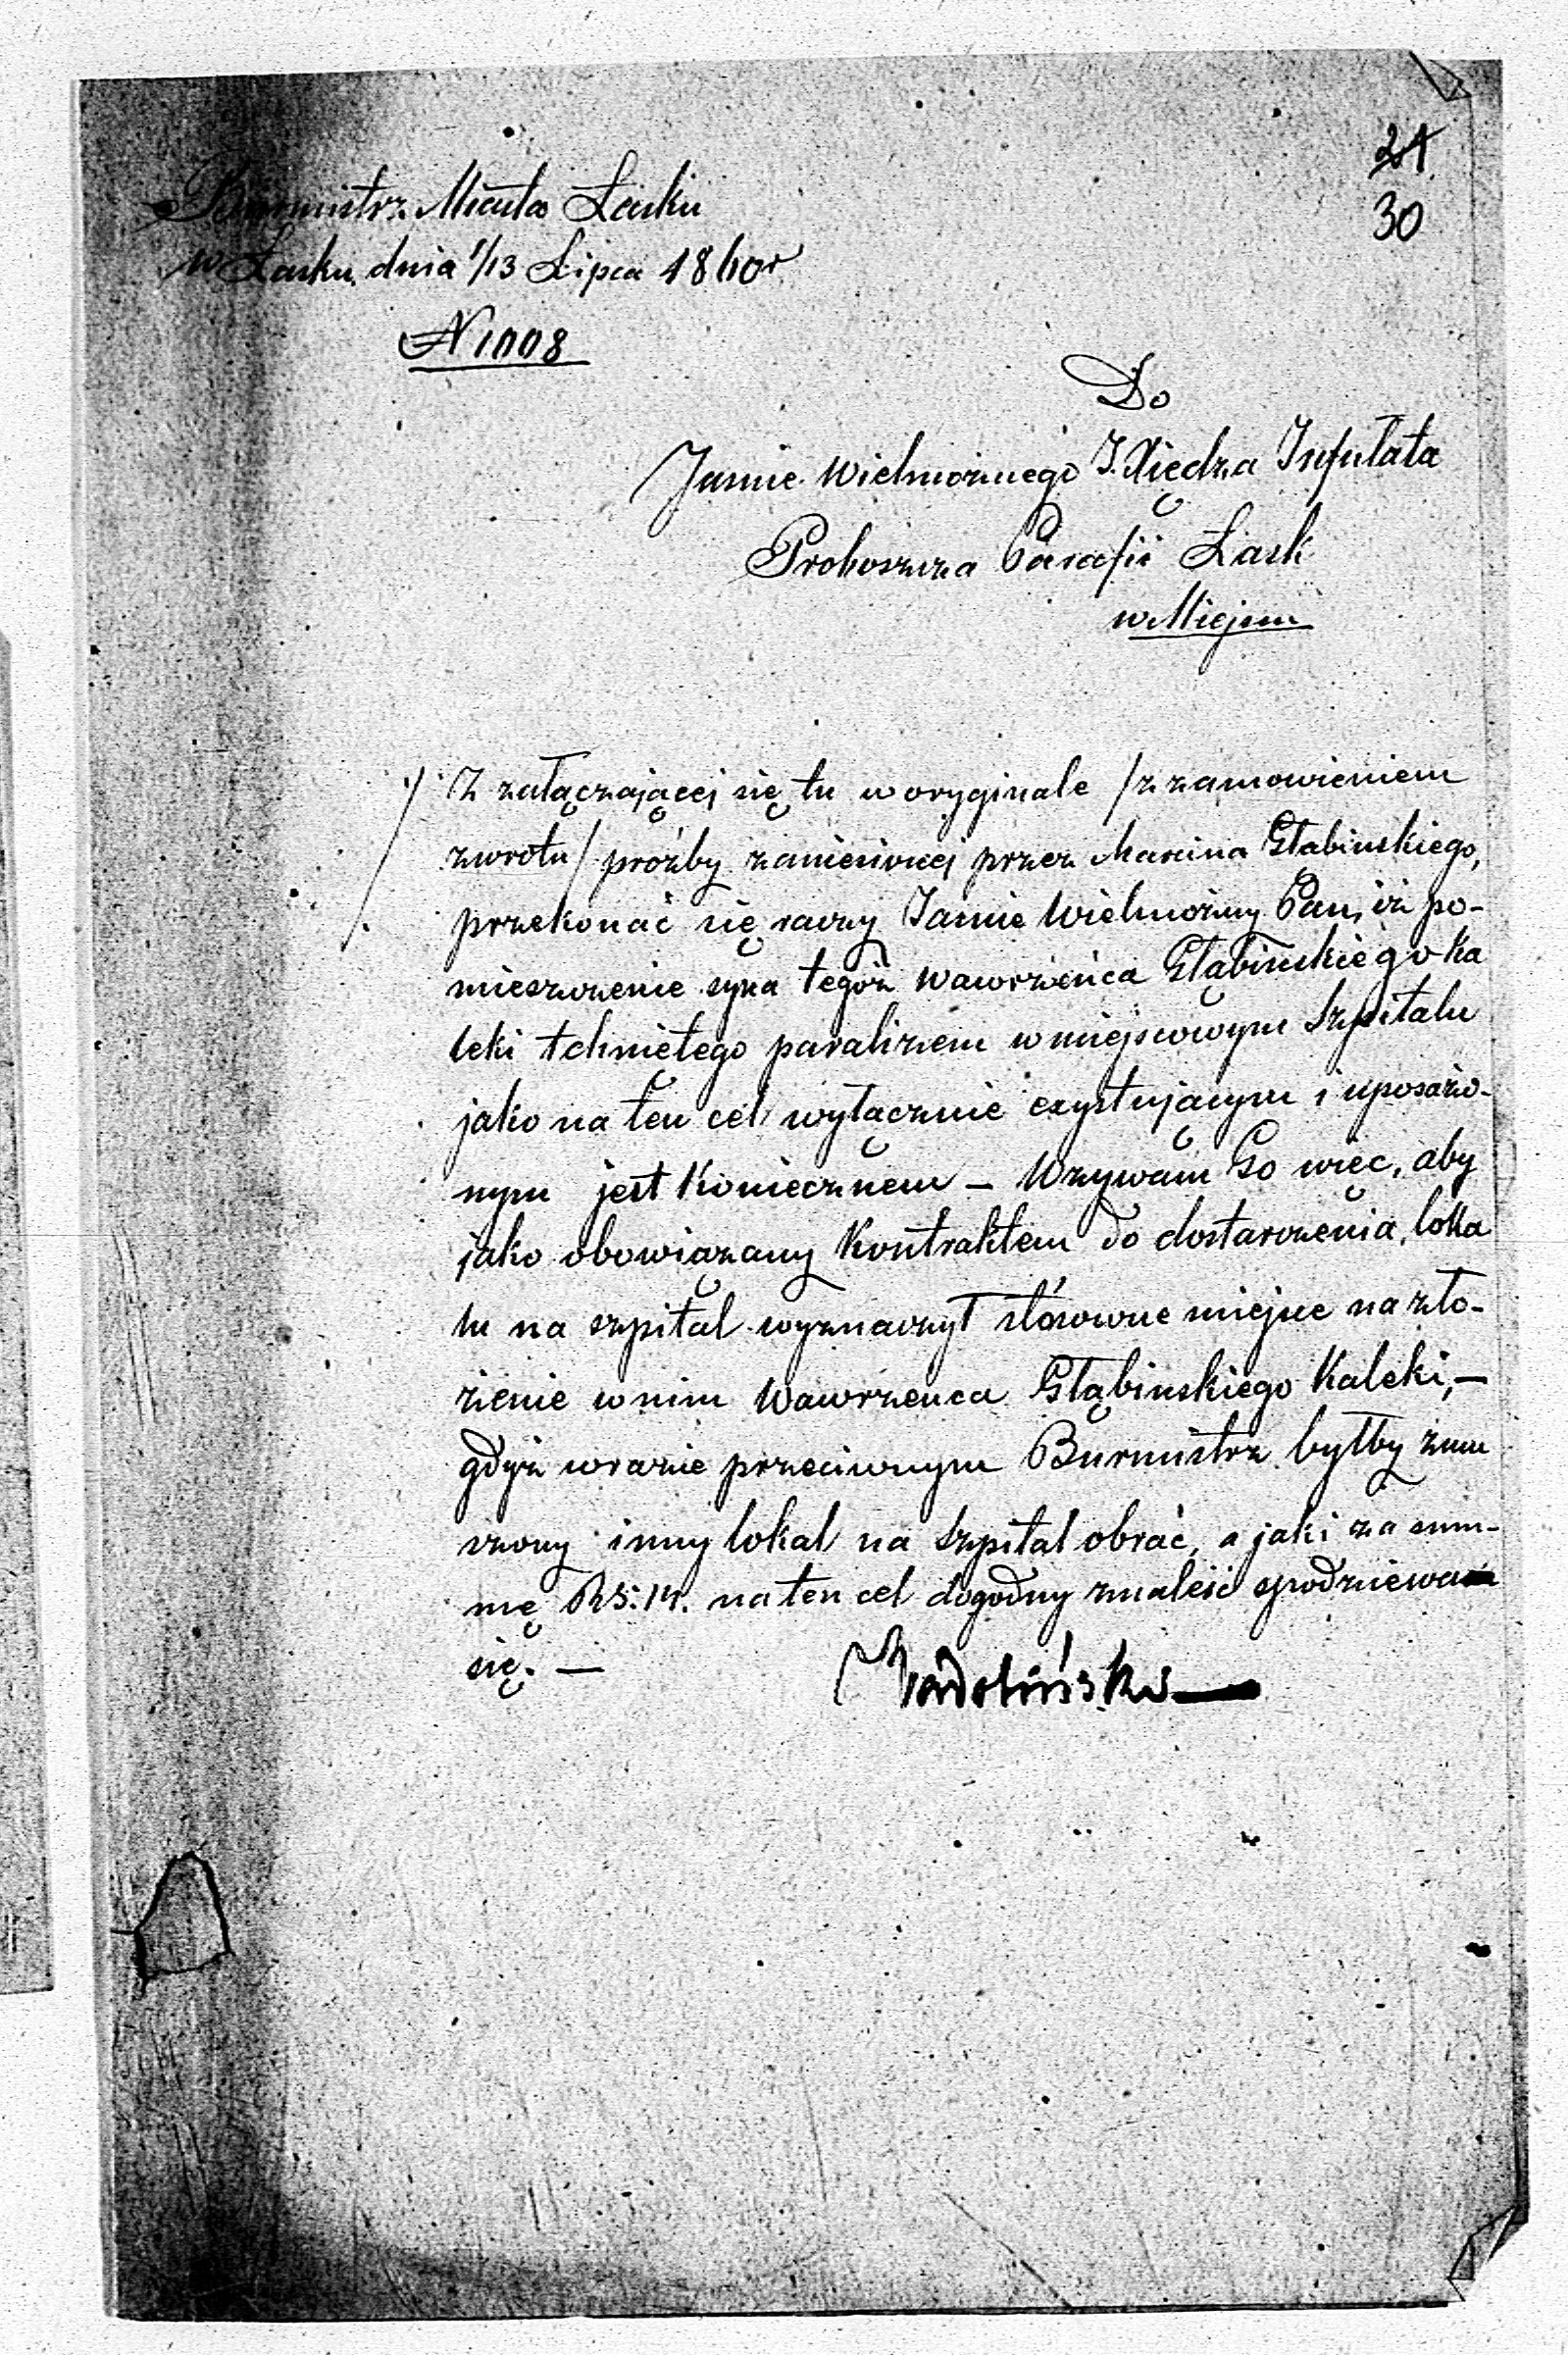 21
30
Burmistrz Miasta Łasku
w Łasku dnia 1/13 Lipca 1860r
N 1008
Do
Jaśnie Wielmożnego J. Xiędza Infułata
Proboszcza Parafii Łask
w Miejscu
./. Z załączającej się tu w oryginale /z zamówieniem
zwrotu/ próżby zaniesionej przez Marcina Głabinskiego,
przekonać się raczy Jaśnie Wielmożny Pan, iż po-
mieszczenie syna tegoż Wawrzeńca Głąbińskiego ka
leki tchniętego paraliżem w miejscowym Szpitalu
jako na ten cel wyłącznie exystującym i uposażo-
nym jest Koniecznem – Wzywam Go więc, aby
jako obowiązany Kontraktem do dostarczenia loka
lu na szpital wyznaczył stósowne miejsce na zło-
żenie w nim Wawrzeńca Głąbinskiego Kaleki, –
gdyż w razie przeciwnym Burmistrz byłby zmu
szony inny lokal na Szpital obrać, a jaki za sum-
mę RS: 14. na ten cel dogodny znaleść spodziewa
się. –